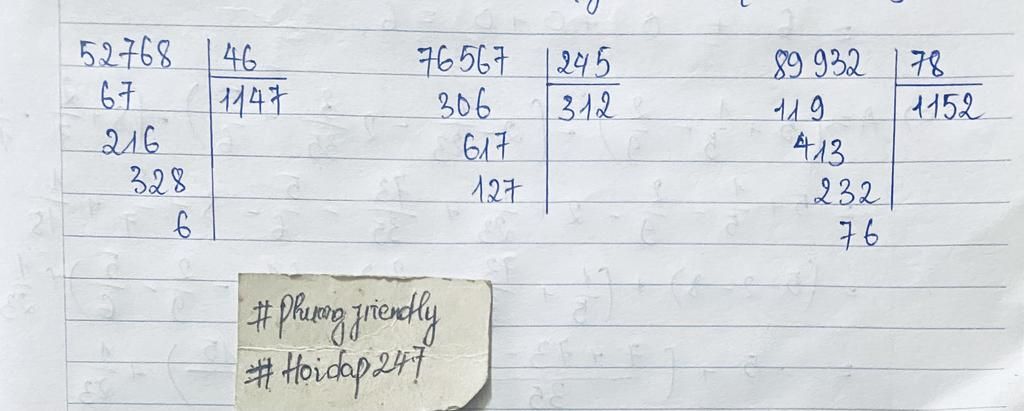 52768 46 76567 245 89932 78
67 1147 306 312 119 1152
216 617 413
328 127 232
6 76
#Phuong friendly
#Hoidap247